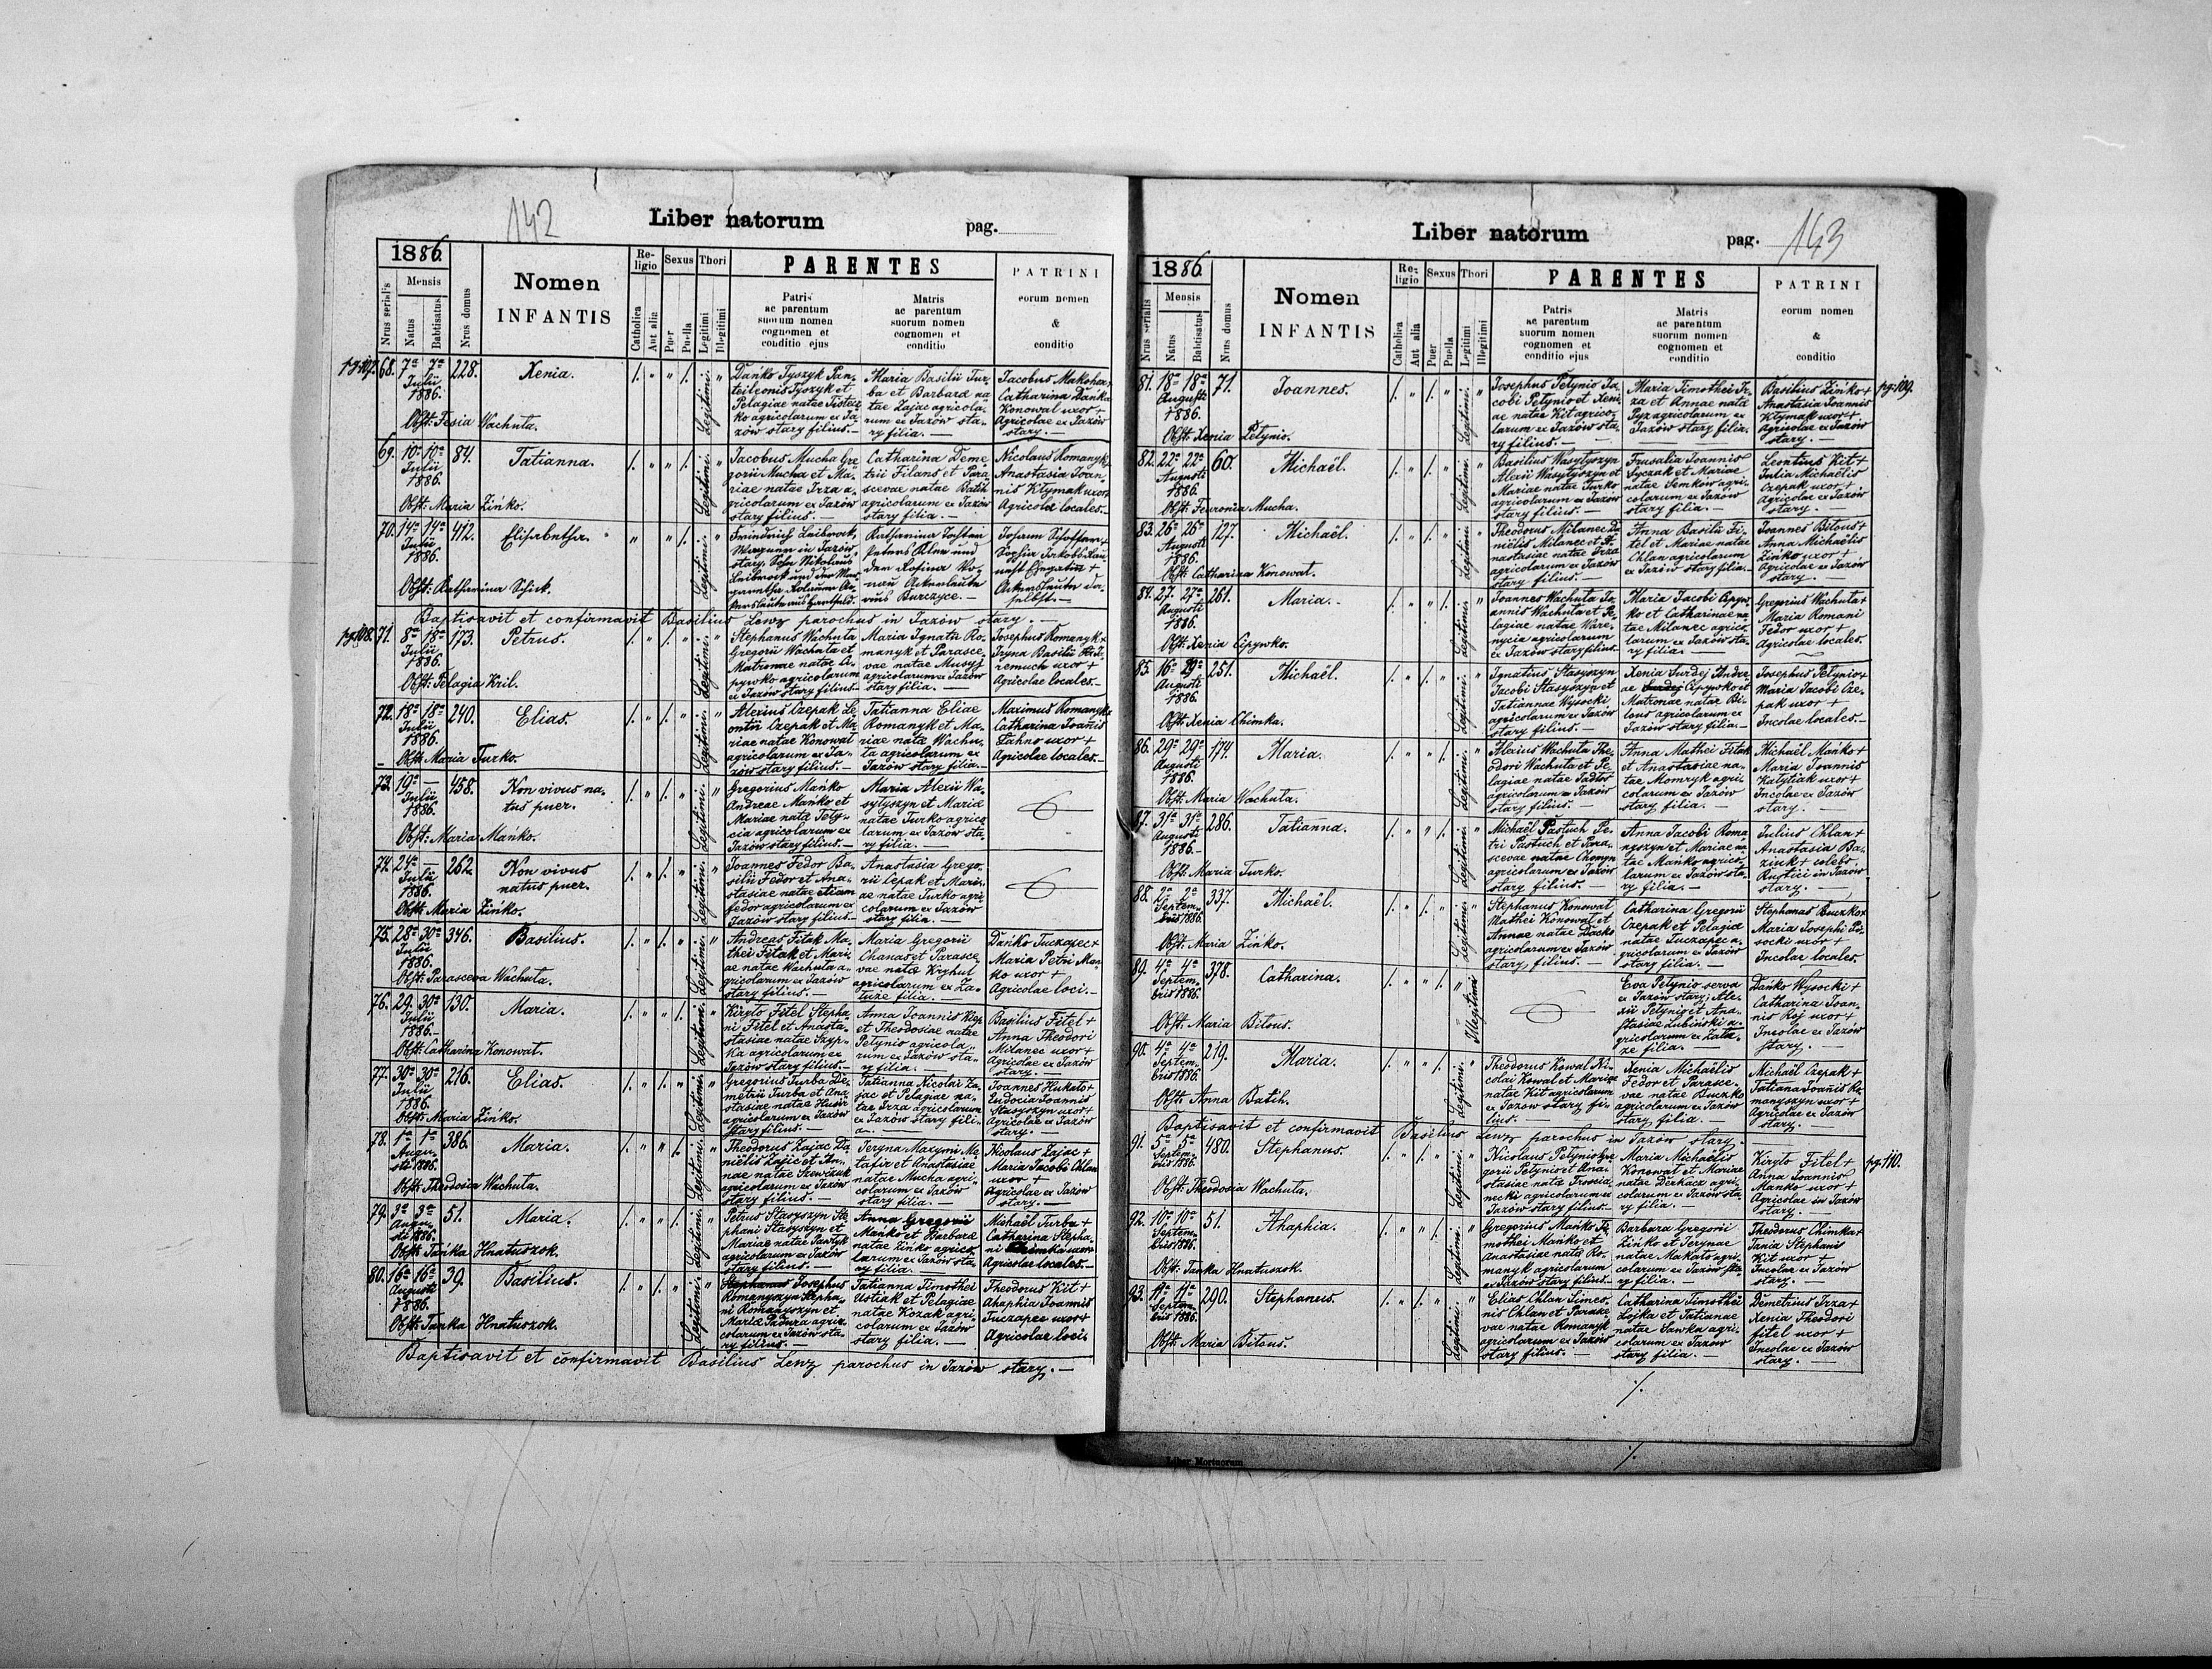 142
Liber natorum
pag.
1886.
Nrus serialis
Mensis
Natus
Babtisatus
Nrus domus
Nomen
INFANTIS
Religio
Catholica
Aut alia
Sexus
Puer
Puella
Thori
Legitimi
Illegitimi
PARENTES
Patris
ac parentum
suorum nomen
cognomen et
conditio ejus
Matris
ac parentum
suorum nomen
cognomen et
conditio
PATRINI
eorum nomen
&
conditio
68. 7a 7a Julii 1886. 228. Xenia. Legitimi.
Obst: Tesia Wachuta.
Dańko Tyszyk Pan-
teleonis Tyszyk et
Pelagiae natae
agricolarum ex Ja-
zów stary filius.—
Maria Basilii Tur-
ba et Barbara na-
tae Zając agricola-
rum ex Jazów sta-
ry filia.—
Jacobus Makohon
Catharina Danka
Konowal uxor +
Agricolae ex Jazów
stary.—
69. 10a 10a Julii 1886. 84. Tatianna. Legitimi.
Obst: Maria Zińko.
Jacobus Mucha Gre
gorii Mucha et Ma-
riae natae Irza a-
gricolarum ex Jazów
stary filius.—
Catharina Deme
trii Filans et Para
scevae natae Batih
agricolarum ex Jazów
stary filia.—
Nicolaus Romanyk +
Anastasia Joan-
nis Kłymak uxor
Agricolae locales.—
70. 14a 14a Julii 1886. 412. Elisabetha. Legitimi.
Obst: Katharina Schick.
71. 8a 18a Julii 1886. 173. Petrus. Legitimi.
Baptisavit et confirmavit Basilius Lenz parochus in Jazów stary.—
Obst: Pelagia Kril.
Stephanus Wachuta
Gregorii Wachuta et
Matronae natae Ci-
pywko agricolarum
ex Jazów stary filius.—
Maria Ignatii Ro-
manyk et Parasce-
vae natae Musyj
agricolarum ex Jazów
stary filia.—
Josephus Romanyk +
Iryna Basilii
uxor +
Agricolae locales.—
72. 18a 18a Julii 1886. 240. Elias. Legitimi.
Obst: Maria Turko.
Alexius Czepak Le
ontii Czepak et Ma
riae natae Konowal
agricolarum ex Ja-
zów stary filius.—
Tatianna Eliae
Romanyk et Ma-
riae nata Wachu-
ta agricolarum ex
Jazów stary filia.—
Maximus Romanyk
Catharina Joannis
Łahno uxor +
Agricolae locales.—
73. 19a — Julii 1886. 458. Non vivus na-
tus puer. Legitimi.
Obst: Maria Mańko.
Gregorius Mańko
Andreae Mańko et
Mariae nata
agricolarum ex
Jazów stary filius.—
Maria Alexii Wa-
sylyszyn et Mariae
natae Turko agrico
larum ex Jazów sta-
ry filia.—
74. 24a — Julii 1886. 262. Non vivus
natus puer. Legitimi.
Obst: Maria Zińko.
Joannes Fedor Ba-
silii Fedor et Ana-
stasiae natae etiam
fedor agricolarum ex
Jazów stary filius.—
Anastasia Grego-
rii Cepak et Mari-
ae natae Turko agri
colarum ex Jazów
stary filia.—
75. 28a 30a Julii 1886. 346. Basilius. Legitimi.
Obst: Parasceva Wachuta.
Andreas Fitak Ma-
thei Fitak et Mari-
ae natae Wachuta a-
gricolarum ex Jazów
stary filius.—
Maria Gregorii
Chanas et Parasce-
vae natae Kryhul
agricolarum ex Za-
łuże filia.—
Dańko Tuczapec +
Maria Petri Mań
ko uxor +
Agricolae loci.—
76. 29. 30a Julii 1886.— 130. Maria. Legitimi.
Obst: Catharina Konowat.
Kiryło Fitel Stepha
ni Fitel et Anasta-
stasiae natae
agricolarum ex
Jazów stary filius.—
Anna Joannis
et Theodosiae natae
Petynio agricola-
rum ex Jazów sta-
ry filia.—
Basilius Fitel +
Anna Theodori
Milanec uxor +
Agricolae ex Jazów
stary.—
77. 30a 30a Julii 1886. 216. Elias. Legitimi.
Obst: Maria Zińko.
Gregorius Turba De-
metrii Turba et Ana
stasiae natae Husir
agricolarum ex Jazów
stary filius.—
Tatianna Nicolai Za-
jac et Pelagiae na-
tae Irza agricolarum
ex Jazów stary fili-
a.—
Joannes Hukało +
Eudocia Joannis
Stasyszyn uxor +
Agricolae ex Jazów
stary.—
78. 1a 1a Augu-
sti 1886. 386. Maria. Legitimi.
Obst: Theodosia Wachuta.
Theodorus Zając Da
nielis Zając et An-
nae natae Szewczuk
agricolarum ex Jazów
stary filius.—
Teryna Maxymi Ma
tafir et Anastasiae
natae Mucha agri
colarum ex Jazów
stary filia.—
Nicolaus Zając +
Maria Jacobi Chlan
uxor +
Agricolae ex Jazów
stary.—
79. 3a 3a Augu-
sti 1886. 51. Maria. Legitimi.
Obst: Tańka Hnatuszok.
Petrus Stasyszyn Ste
phani Stasyszyn et
Mariae natae Pawlyk
agricolarum ex Jazów
stary filius.—
Anna Gregorii
Mańko et Barbarae
natae Zińko agrico-
larum ex Jazów sta-
ry filia.—
Michaël Turba +
Catharina Stepha-
ni Chimka uxor
Agricolae locales.—
80. 16a 16a Augusti 1886. 39. Basilius. Legitimi.
Obst: Tańka Hnatuszok.
Stephanus Josephus
Romanyszyn Stepha-
ni Romanyszyn et
Mariae Padura agri-
colarum ex Jazów sta-
ry filius.—
Tatianna Timothei
Ustiak et Pelagiae
natae Kozak agri-
colarum ex Jazów
stary filia.—
Theodorus Kit +
Ahaphia Joannis
Tuczapec uxor +
Agricolae loci.
Baptisavit et confirmavit Basilius Lenz parochus in Jazów stary.—
Liber natorum
pag. 143
1886.
Nrus serialis
Mensis
Natus
Babtisatus
Nrus domus
Nomen
INFANTIS
Religio
Catholica
Aut alia
Sexus
Puer
Puella
Thori
Legitimi
Illegitimi
PARENTES
Patris
ac parentum
suorum nomen
cognomen et
conditio ejus
Matris
ac parentum
suorum nomen
cognomen et
conditio
PATRINI
eorum nomen
&
conditio
81. 18a 18a Augusti 1886. 71. Joannes. Legitimi.
Obst: Xenia Petynio.
Josephus Petynio Ja-
cobi Petynio et Xeni-
ae natae Kit agrico-
larum ex Jazów sta-
ry filius.—
Maria Timothei Ir-
za et Annae nata
Pyz agricolarum ex
Jazów stary filia.
Basilius Zińko +
Anastasia Joannis
Kłymak uxor +
Agricolae ex Jazów
stary.—
pg. 109.
82. 22a 22a Augusti 1886. 60. Michaël. Legitimi.
Obst: Feuronia Mucha.
Basilius Wasylyszyn
Alexii Wasylyszyn et
Mariae natae Turko
agricolarum ex Jazów
stary filius.—
Joannis
Syczak et Mariae
natae Semków agri-
colarum ex Jazów
stary filia.—
Leontius Kit +
Julia Michaëlis
Czepak uxor +
Agricolae ex Jazów
stary.—
83. 26a 26a Augusti 1886. 127. Michaël. Legitimi.
Obst: Catharina Konowat.
Theodorus Milanec Da
nielis Milanec et A-
nastasiae natae Irza
agricolarum ex Jazów
stary filius.—
Anna Basilii Fi-
tel et Mariae natae
Chlan agricolarum
ex Jazów stary filia.—
Joannes Bilous +
Anna Michaëlis
Zińko uxor +
Agricolae ex Jazów
stary.—
84. 27. 27a Augusti 1886. 261. Maria.— Legitimi.
Obst: Xenia Cipywko.
Joannes Wachuta Jo-
annis Wachuta et Pe-
lagiae natae Ware-
nycia agricolarum
ex Jazów stary filius.—
Maria Jacobi Cipyw-
ko et Catharinae na-
tae Milanec agrico-
larum ex Jazów sta-
ry filia.—
Gregorius Wachuta +
Maria Romani
Fedor uxor +
Agricolae locales.
85. 16a 29a Augusti 1886. 251. Michaël. Legitimi.
Obst: Xenia Chimka.
Ignatius Stasyszyn
Jacobi Stasyszyn et
Tatiannae Wysocki
agricolarum ex Jazów
stary filius.—
Xenia Surdej Andre
ae Surdej Cipywko et
Matronae natae Bi-
lous agricolarum ex
Jazów stary filia.—
Josephus Petynio +
Maria Jacobi Cze-
pak uxor +
Incolae locales.—
86. 29a 29a Augusti 1886. 174. Maria. Legitimi.
Obst: Maria Wachuta.
Alexius Wachuta The-
odori Wachuta et Pe-
lagiae natae
agricolarum ex Jazów
stary filius.—
Anna Mathei Fitak
et Anastasiae na-
tae Momryk agri-
colarum ex Jazów
stary filia.—
Michaël Mańko +
Maria Joannis
Kałytiak uxor +
Incolae ex Jazów
stary.—
87. 31a 31a Augusti 1886. 286. Tatianna. Legitimi.
Obst: Maria Turko.
Michaël Pastuch Pe-
tri Pastuch et Para-
scevae natae Chomyn
agricolarum ex Jazów
stary filius.—
Anna Jacobi Roma-
nyszyn et Mariae na
tae Mańko agrico-
larum ex Jazów sta-
ry filia.—
Julius Chlan +
Anastasia Ba-
ziuk + coleb.
Rustici in Jazów
stary.—
88. 2a 2a Septem-
bris 1886. 337. Michaël. Legitimi.
Obst: Maria Zińko.
Stephanus Konowat
Mathei Konowat et
Annae natae Dacko
agricolarum ex Jazów
stary filius.—
Catharina Gregorii
Czepak et Pelagia
natae Tuczapec a-
gricolarum ex Jazów
stary filia.—
Stephanus Buczko +
Maria Josephi
uxor +
Incolae locales.
89. 4a 4a Septem-
bris 1886. 378. Catharina. Illegitimi
Obst: Maria Bilous.
Eva Petynio serva
ex Jazów stary, Ale-
xii Petynio et Ana-
stasiae Lubiński a-
gricolarum ex
filia.—
Dańko Wysocki +
Catharina Joan-
nis Roj uxor +
Incolae ex Jazów
stary.—
90. 4a 4a Septem-
bris 1886. 219. Maria. Legitimi.
Obst: Anna Batih.
Theodorus Kowal Ni-
colai Kowal et Mariae
natae Kit agricolarum
ex Jazów stary fi-
lius.—
Xenia Michaëlis
Fedor et Parasce-
vae natae Buczko
agricolarum ex Jazów
stary filia.—
Michaël Czepak +
Tatiana Joannis Ro
manyszyn uxor +
Agricolae ex Jazów
stary.—
Baptisavit et confirmavit Basilius Lenz parochus in Jazów stary.—
91. 5a 5a Septem-
bris 1886. 480. Stephanus. Legitimi.
Obst: Theodosia Wachuta.
Nicolaus Petynio Gre
gorii Petynio et Ana-
stasiae nata
agricolarum ex
Jazów stary filius.—
Maria Michaëlis
Konowat et Mariae
natae Derkacz agri-
colarum ex Jazów sta-
ry filia.—
Kiryło Fitel +
Anna Joannis
Mańko uxor +
Agricolae in Jazów
stary.—
pg. 110.
92. 10a 10a Septem-
bris 1886. 51. Ahaphia. Legitimi.
Obst: Tańka Hnatuszok.
Gregorius Mańko Ti-
mothei Mańko et
Anastasiae nata Ro-
manyk agricolarum
ex Jazów stary filius.—
Barbara Gregorii
Zińko et Terynae
natae Makało agri-
colarum ex Jazów sta-
ry filia.—
Theodorus Chimka +
Tania Stephani
Kit uxor +
Incolae ex Jazów
stary.—
93. 11a 11a Septem-
bris 1886. 290. Stephanus. Legitimi.
Obst: Maria Bilous.
Elias Chlan Simeo-
nis Chlan et Parasce
vae natae Romanyk
agricolarum ex Jazów
stary filius.—
Catharina Timothei
Lojka et Tatianae
natae Sawka agri-
colarum ex Jazów
stary filia.—
Demetrius Irza +
Xenia Theodori
fitel uxor +
Incolae ex Jazów
stary.—
Liber Mortuorum